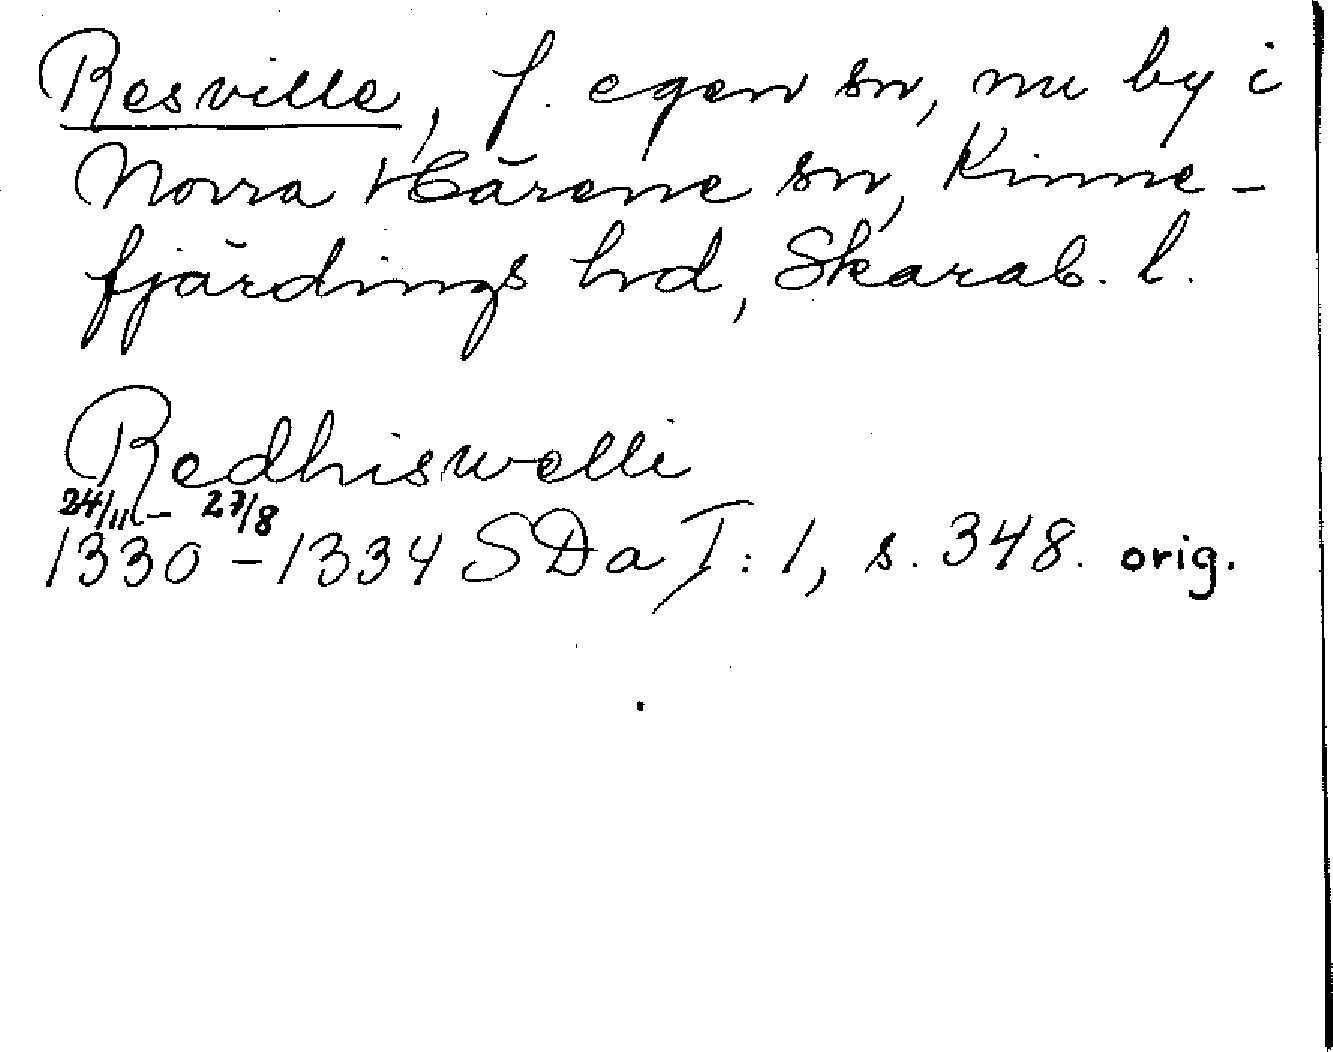 Resville, f. egen sn, nu by i
Norra Härene sn, Kinne-
fjärdings hd, Skarab. l.
Redhiswelli
24/11 - 27/8
1330 - 1334 SDa I: 1, s. 348. orig.